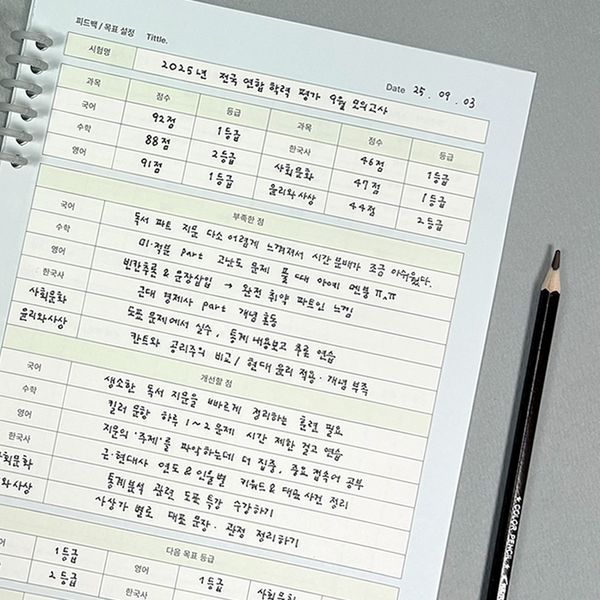 피드백 / 목표 설정 Tittle.
Date 25 . 09 . 03
시험명 2025년 전국 연합 학력 평가 9월 모의고사
과목 점수 등급 과목 점수 등급
국어 92점 1등급 한국사 46점 1등급
수학 88점 2등급 사회문화 47점 1등급
영어 91점 1등급 윤리와사상 44점 2등급
부족한 점
국어 독서 파트 지문 다소 어렵게 느껴져서 시간 분배가 조금 아쉬웠다.
수학 미·적분 part 고난도 문제 풀 때 아예 멘붕 ㅠ.ㅠ
영어 빈칸추론 & 문장삽입 → 완전 취약 파트인 느낌
한국사 근대 경제사 part 개념 혼동
사회문화 도표 문제에서 실수, 통계 내용보고 추론 연습
윤리와사상 칸트와 공리주의 비교 / 현대 윤리 적용·개념 부족
개선할 점
국어 생소한 독서 지문을 빠르게 정리하는 훈련 필요
수학 킬러 문항 하루 1~2문제 시간 제한 걸고 연습
영어 지문의 '주제'를 파악하는데 더 집중, 중요 접속어 공부
한국사 근·현대사 연도 & 인물별 키워드 & 대표 사건 정리
사회문화 통계분석 관련 도표 특강 수강하기
와사상 사상가 별로 대표 문장·관점 정리하기
다음 목표 등급
1등급 영어 1등급 사회문화
2등급 한국사
★ COLOR PENCIL ★